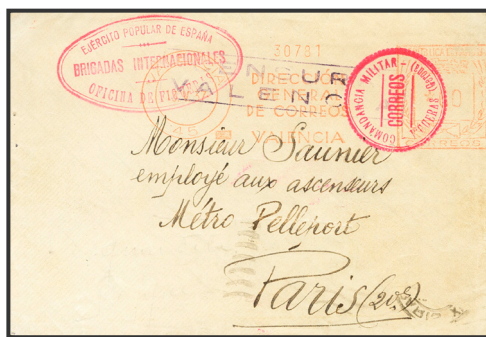 EJÉRCITO POPULAR DE ESPAÑA
BRIGADAS INTERNACIONALES
OFICINA DE
30781
DIRECCIÓN
GENERAL
DE CORREOS
VALENCIA
COMANDANCIA MILITAR
CORREOS
Monsieur Saunier
employé aux ascenseurs
Métro Pelleport
Paris (20e)